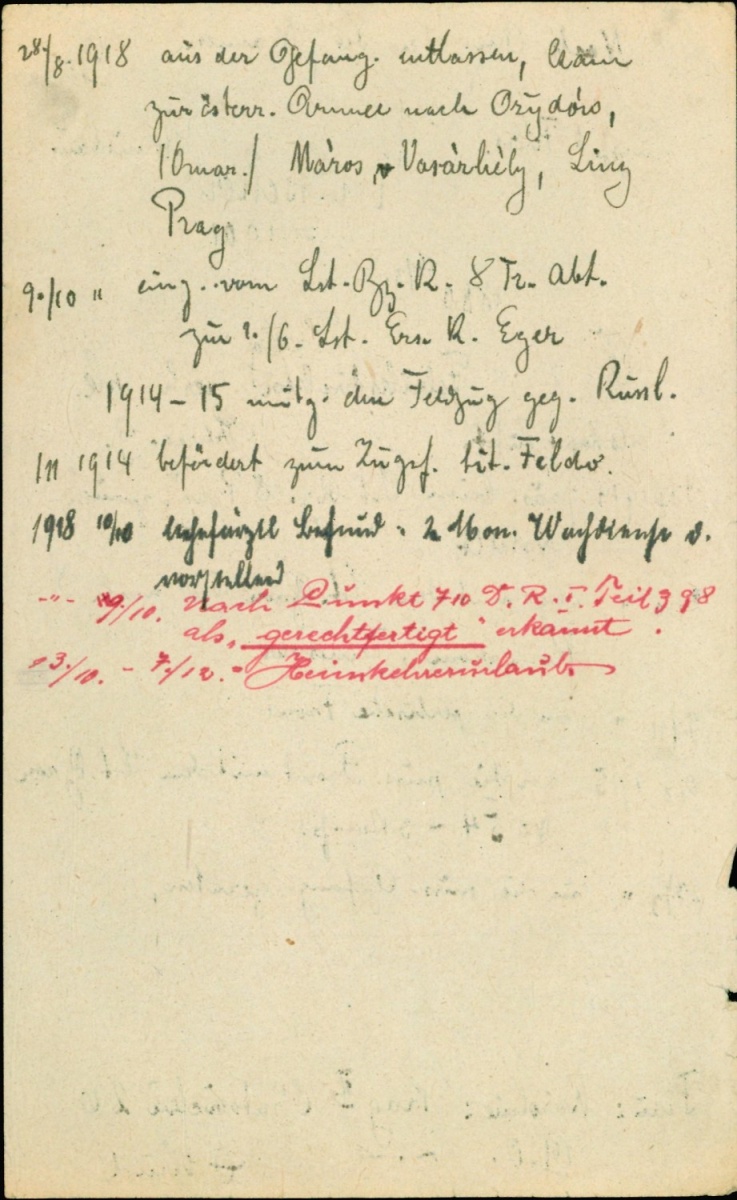 28/8. 1918 aus der Gefang. entlassen, kam
zur österr. Armee nach Ozydów,
Máros Vasárhély, Linz
Prag
9./10 " eing. vom Lst. Bz. K. 8 Tr. Abt.
zur /6. Lst. Ers. K. Eger
1914-15 mitg. den Feldzug geg. Russl.
1914 befördert zum Zugsf. tit. Feldw.
1918 10/10 Befund. 2 Mon. Wachdienst
vorstellend
-"- 9/10. Nach Punkt 710 D. R. I. Teil
als "gerechtfertigt" erkannt.
13./10. - 7./12. - Heimkehrerurlaub